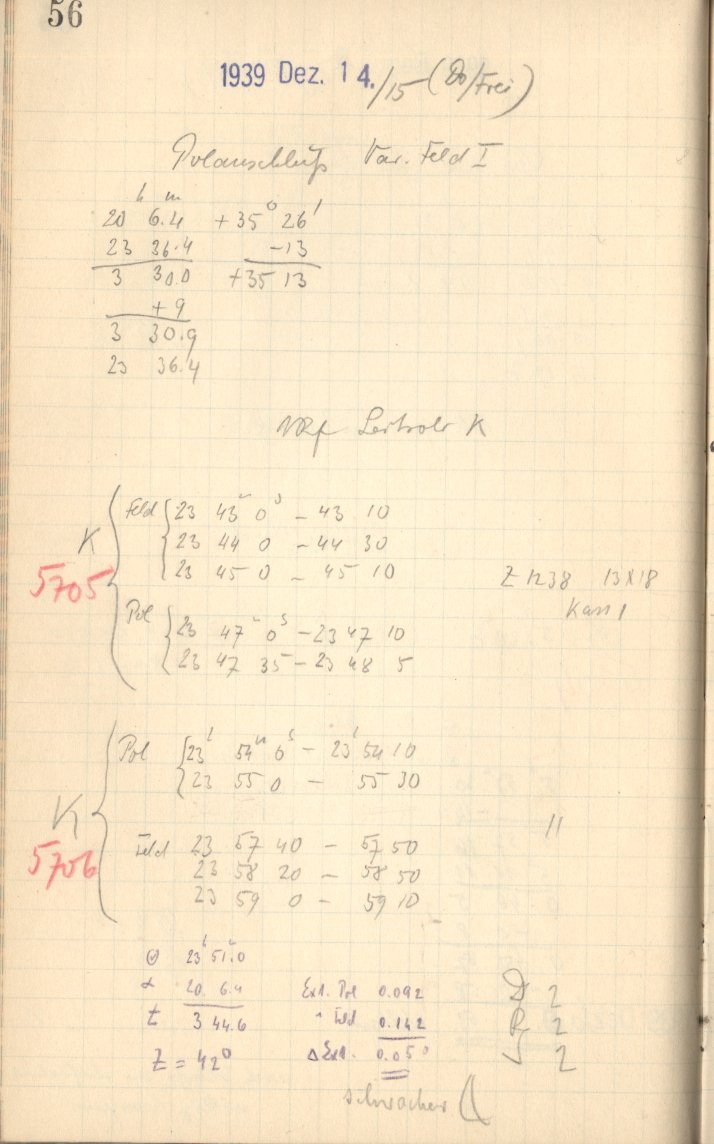 56
1939 Dez. 14./15 (Do/Frei)
Polanschluß Var. Feld I
h m
20 6.4 +35° 26'
23 36.4 -13
3 30.0 +35 13
+9
3 30.9
23 36.4
Leitrohr K
K 5705
Feld 23 43m 0s - 43 10
23 44 0 - 44 30
23 45 0 - 45 10
Z 1238 13x18
Kass 1
Pol 23 47m 0s - 23 47 10
23 47 35 - 23 48 5
K 5706
Pol 23h 54m 0s - 23h 54 10
23 55 0 - 55 30
"
Feld 23 57 40 - 57 50
23 58 20 - 58 50
23 59 0 - 59 10
Θ 23h 51.0
α 20 6.4
t 3 44.6
Z = 42°
Ext. Pol 0.092
" Feld 0.142
Δ Ext. 0.050
D 2
R 2
S 2
schwacher